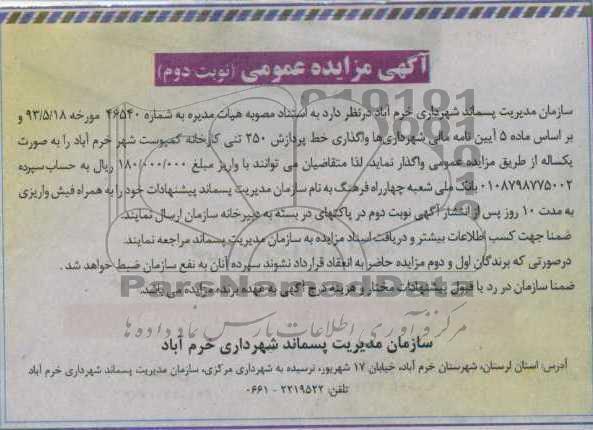 آگهی مزایده عمومی (نوبت دوم)
سازمان مدیریت پسماند شهرداری خرم آباد درنظر دارد به استناد مصوبه هیات مدیره به شماره ۴۶۵۴۰ مورخه ۹۳/۵/۱۸ و
بر اساس ماده ۵ آیین نامه مالی شهرداری‌ها واگذاری خط پردازش ۲۵۰ تنی کارخانه کمپوست شهر خرم آباد را به صورت
یکساله از طریق مزایده عمومی واگذار نماید. لذا متقاضیان می توانند با واریز مبلغ ۱۸۰/۰۰۰/۰۰۰ ریال به حساب سپرده
۰۱۰۸۷۹۸۷۷۵۰۰۲ بانک ملی شعبه چهارراه فرهنگ به نام سازمان مدیریت پسماند پیشنهادات خود را به همراه فیش واریزی
به مدت ۱۰ روز پس از انتشار آگهی نوبت دوم در پاکتهای در بسته به دبیرخانه سازمان ارسال نمایند.
ضمنا جهت کسب اطلاعات بیشتر و دریافت اسناد مزایده به سازمان مدیریت پسماند مراجعه نمایند.
درصورتی که برندگان اول و دوم مزایده حاضر به انعقاد قرارداد نشوند سپرده آنان به نفع سازمان ضبط خواهد شد .
ضمنا سازمان در رد یا قبول پیشنهادات مختار و هزینه درج آگهی به عهده برنده مزایده می باشد.
ParsNamadData
مرکز فرآوری اطلاعات پارس نماد داده ها
سازمان مدیریت پسماند شهرداری خرم آباد
آدرس: استان لرستان، شهرستان خرم آباد، خیابان ۱۷ شهریور، نرسیده به شهرداری مرکزی، سازمان مدیریت پسماند شهرداری خرم آباد
تلفن: ۲۲۱۹۵۲۲ - ۰۶۶۱